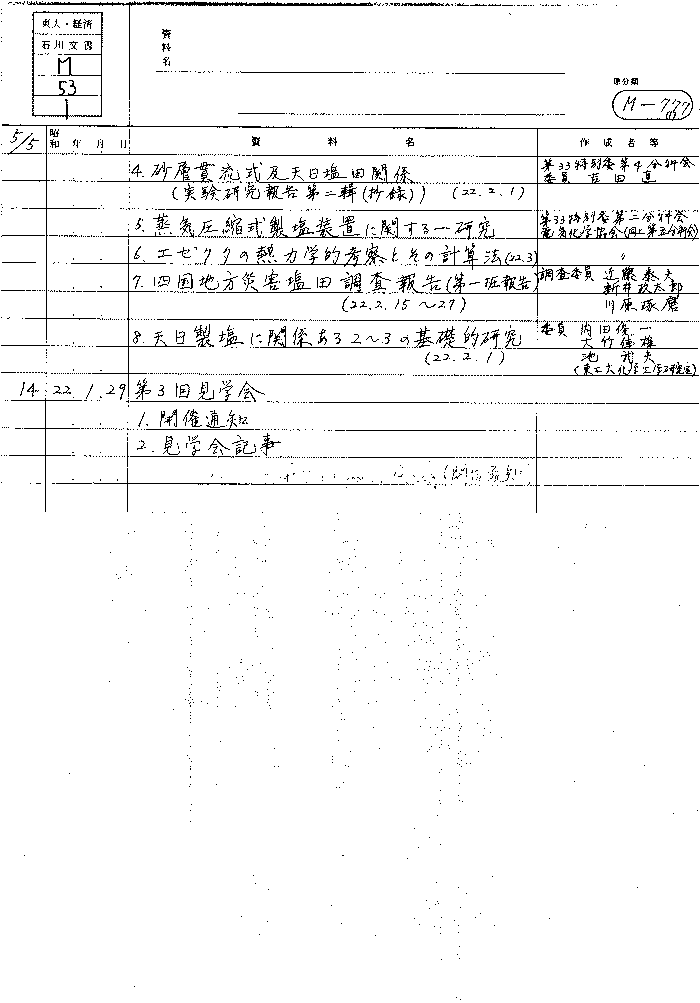 東大・経済
石川文書
M
53
1
資料名
原分類
M-777
5/5
昭和 年 月 日 資料名 作成名等
4. 砂層貫流式及天日塩田関係 第33特別委第4分科会
(実験研究報告第二輯(抄録)) (22.2.1) 委員 吉田直
5. 蒸気圧縮式製塩装置に関する一研究 第33特別委第三分科会
電気化学協会(同上第五分科会)
6. エゼクタの熱力学的考察とその計算法(22.3) 〃
7. 四国地方災害塩田調査報告(第一班報告) 調査委員 近藤泰夫
新井政太郎
(22.2.15〜27) 川原琢磨
8. 天日製塩に関係ある2〜3の基礎的研究 委員 内田俊一
大竹伝雄
(22.2.1) 夫
(東工大化学工学研究室)
14 22.1.29 第3回見学会
1. 開催通知
2. 見学会記事